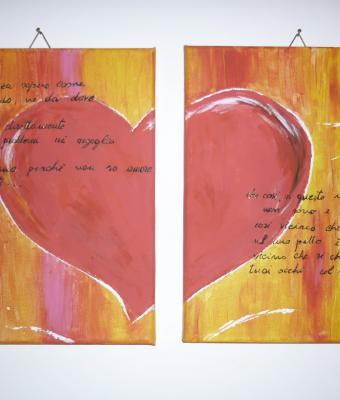 sapere come
né da dove
direttamente
problemi né orgoglio
amo perché non so amare
che così, in questo m
non sono e
così vicino che
ul mio petto è
vicino che si ch
tuoi occhi col